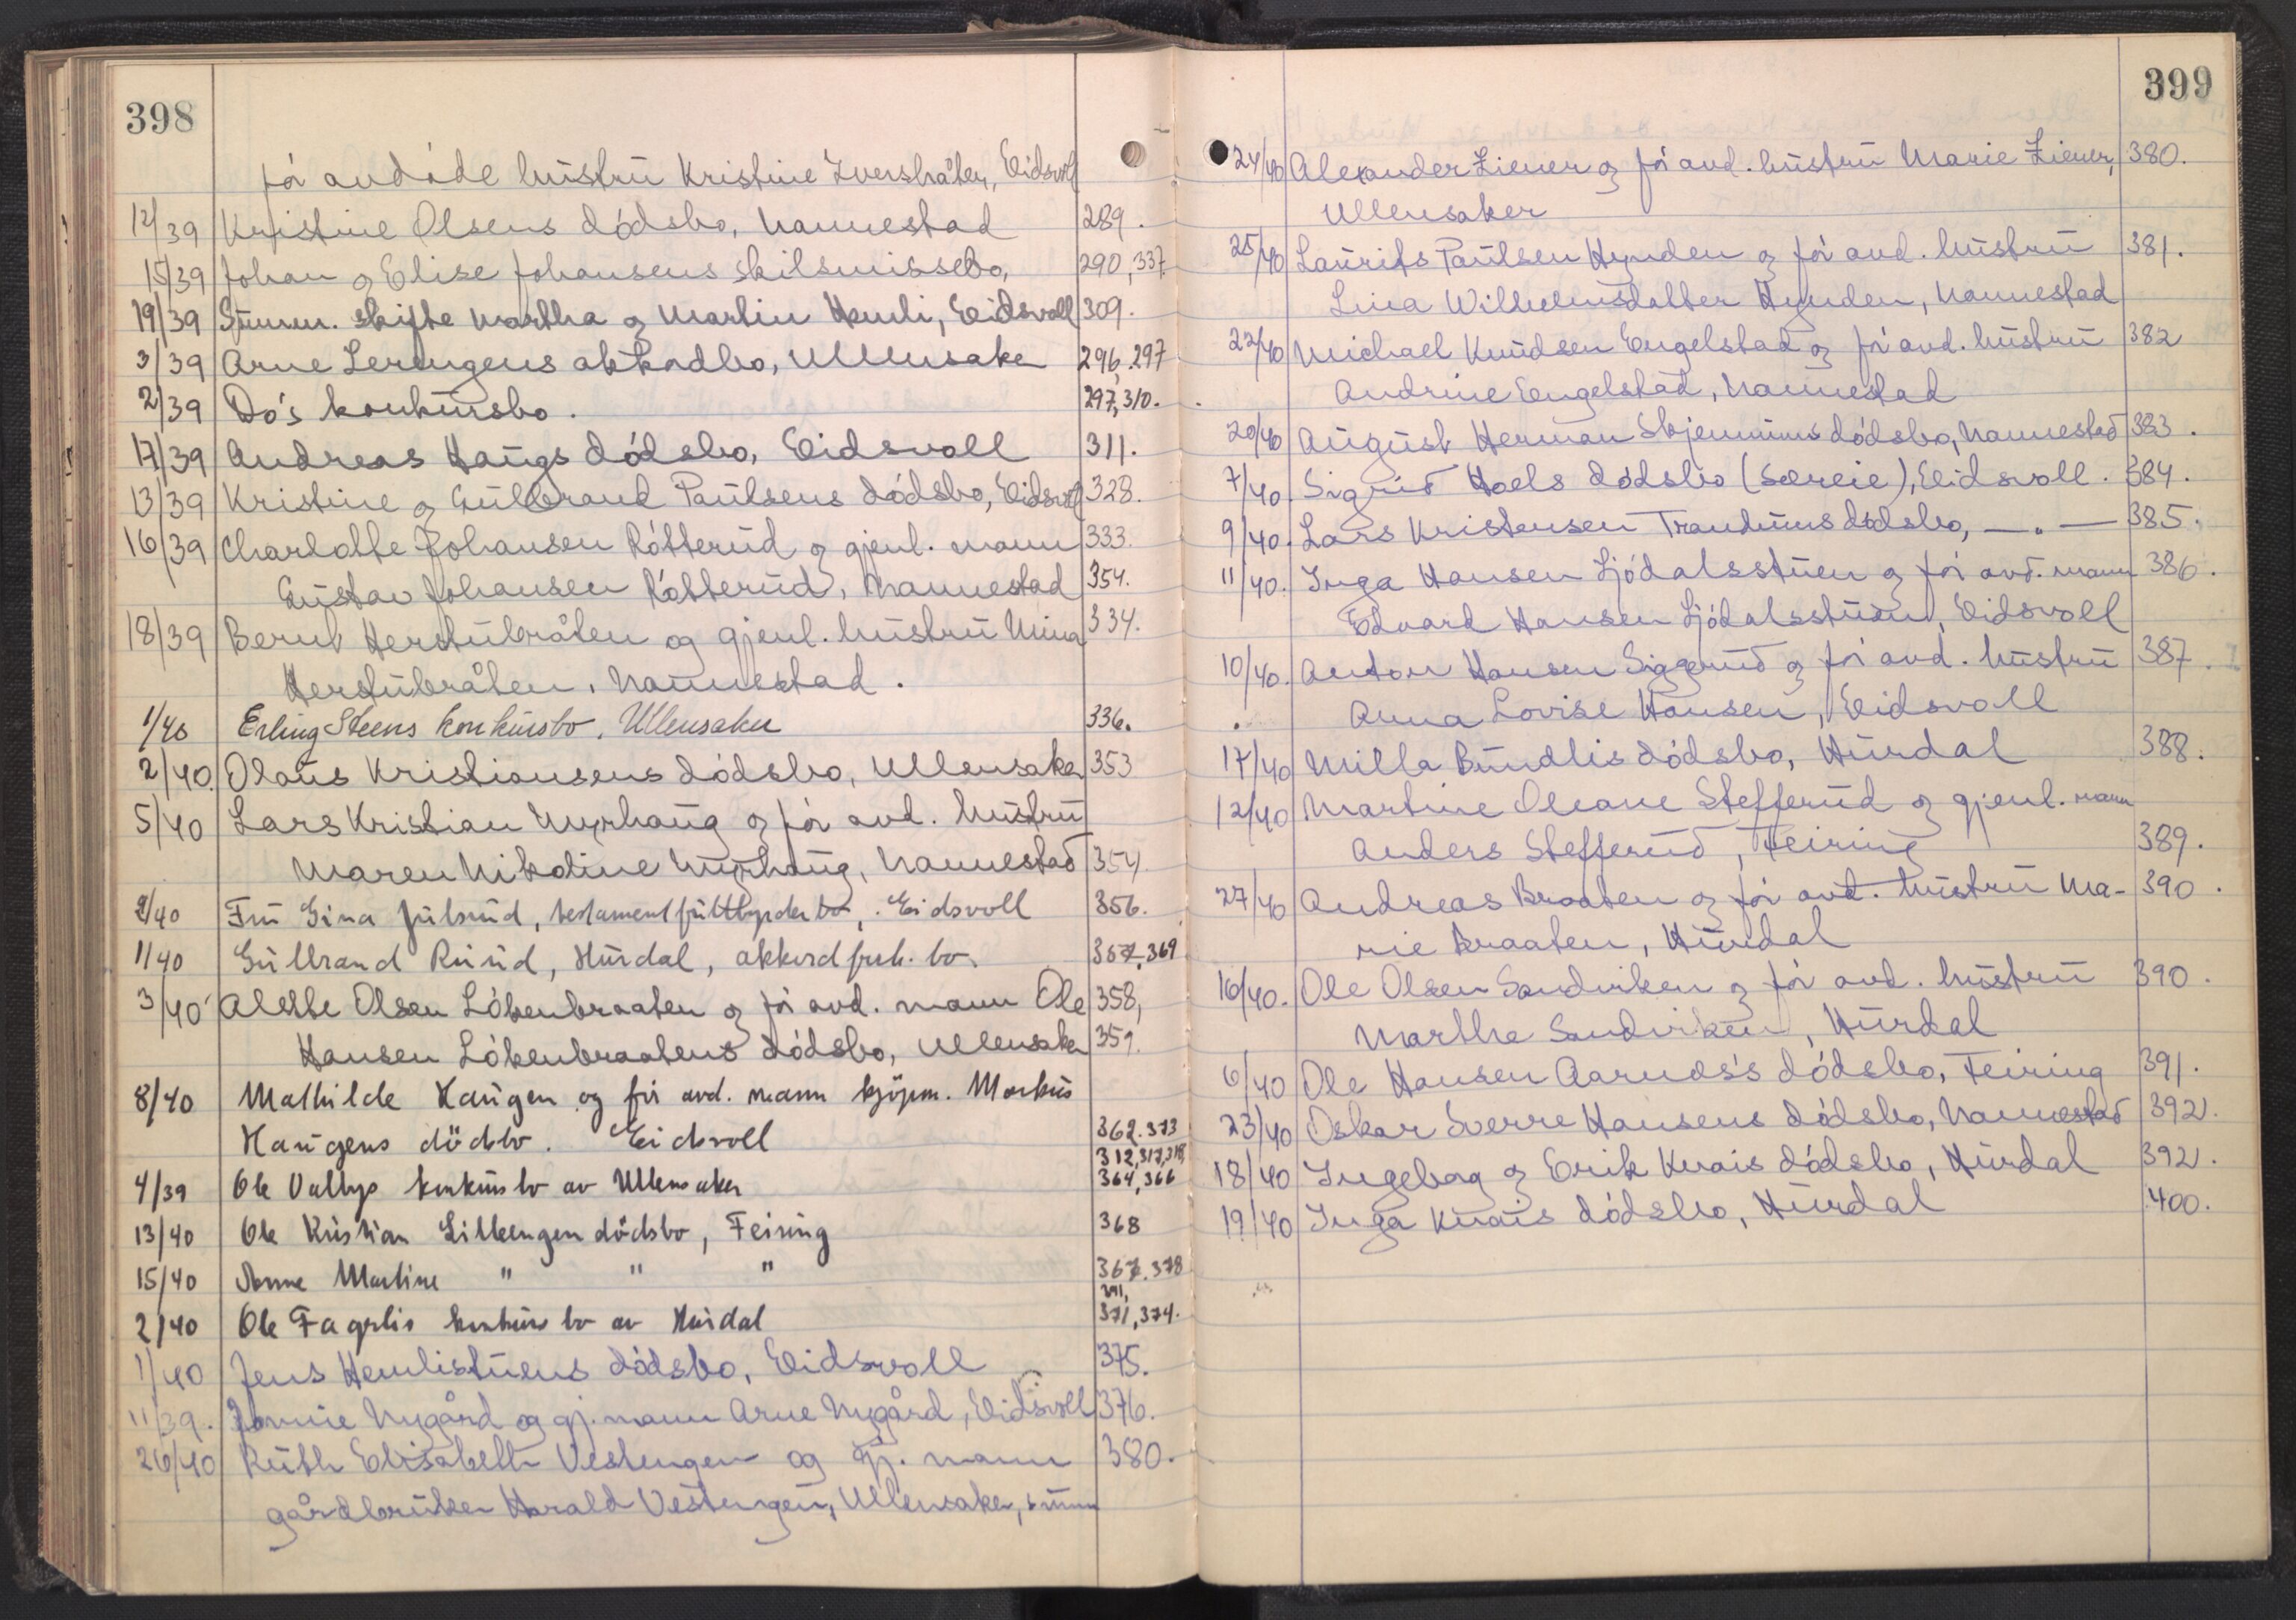 398
før avdøde hustru Kristine Iversbråten, Eidsvoll
12/39 Kristine Olsens dødsbo, Nannestad 289.
15/39 Johan og Elise Johansens skilsmissebo, 290, 337.
19/39 Summ. skifte Martha og Martin Hemli, Eidsvoll 309.
3/39 Arne Lerengens akkordbo, Ullensaker 296, 297
2/39 Do's konkursbo. 297, 310.
17/39 Andreas Haugs dødsbo, Eidsvoll 311.
13/39 Kristine og Gulbrand Paulsens dødsbo, Eidsvoll 328.
16/39 Charlotte Johansen Råtterud og gjenl. mann 333.
Gustav Johansen Råtterud, Nannestad 354.
18/39 Bernt Herstubråten og gjenl. hustru Mina 334.
Herstubråten, Nannestad.
1/40 Erling Steens konkursbo, Ullensaker 336.
2/40. Olaus Kristiansens dødsbo, Ullensaker 353
5/40 Lars Kristian Myrhaug og før avd. hustru
Maren Nikoline Myrhaug, Nannestad 354
2/40 Fru Gina Julsrud, testamentfullbyrderbo, Eidsvoll 356.
1/40 Gulbrand Ruud, Hurdal, akkordforh. bo. 357, 369
3/40 Alette Olsen Løkenbraaten og før avd. mann Ole 358,
Hansen Løkenbraatens dødsbo, Ullensaker 359.
8/40 Mathilde Haugen og før avd. mann kjøpm. Markus
Haugens dødsbo. Eidsvoll 362. 373
312, 317, 318,
4/39 Ole Vallys konkursbo av Ullensaker 364, 366
13/40 Ole Kristian Lilleengen dødsbo, Feiring 368
15/40 Anne Martine " " " 367. 378
2/40 Ole Fagerlis konkursbo av Hurdal 371, 374.
1/40 Jens Hemlistuens dødsbo, Eidsvoll 375.
11/39. Jonnie Nygård og gj. mann Arne Nygård, Eidsvoll 376.
26/40 Ruth Elisabeth Vestengen og gj. mann 380.
gårdbruker Harald Vestengen, Ullensaker, summ
399
24/40 Alexander Ziener og før avd. hustru Marie Ziener, 380.
Ullensaker
25/40 Laurits Paulsen Hynden og før avd. hustru 381.
Lina Wilhelmsdatter Hynden, Nannestad
22/40 Michael Knudsen Engelstad og før avd. hustru 382
Andrine Engelstad, Nannestad
20/40 August Herman Skjennums dødsbo, Nannestad 383.
7/40. Sigrid Hoels dødsbo (særeie), Eidsvoll. 384.
9/40. Lars Kristensen Trandums dødsbo, —„— 385.
11/40. Inga Hansen Ljødalsstuen og før avd. mann 386.
Edvard Hansen Ljødalsstuen, Eidsvoll
10/40. Anton Hansen Siggerud og før avd. hustru 387.
Anna Lovise Hansen, Eidsvoll
17/40 Milla Bundlis dødsbo, Hurdal 388.
12/40 Martine Oleane Stefferud og gjenl. mann
Anders Stefferud, Feiring 389.
27/40 Andreas Braaten og før avd. hustru Ma- 390.
rie Braaten, Hurdal
16/40. Ole Olsen Sandviken og før avd. hustru 390.
Marthe Sandviken, Hurdal
6/40 Ole Hansen Aarnes's dødsbo, Feiring 391.
23/40 Oskar Sverre Hansens dødsbo, Nannestad 392.
18/40 Ingeborg og Erik Knais dødsbo, Hurdal 392.
19/40 Inga Knais dødsbo, Hurdal 400.